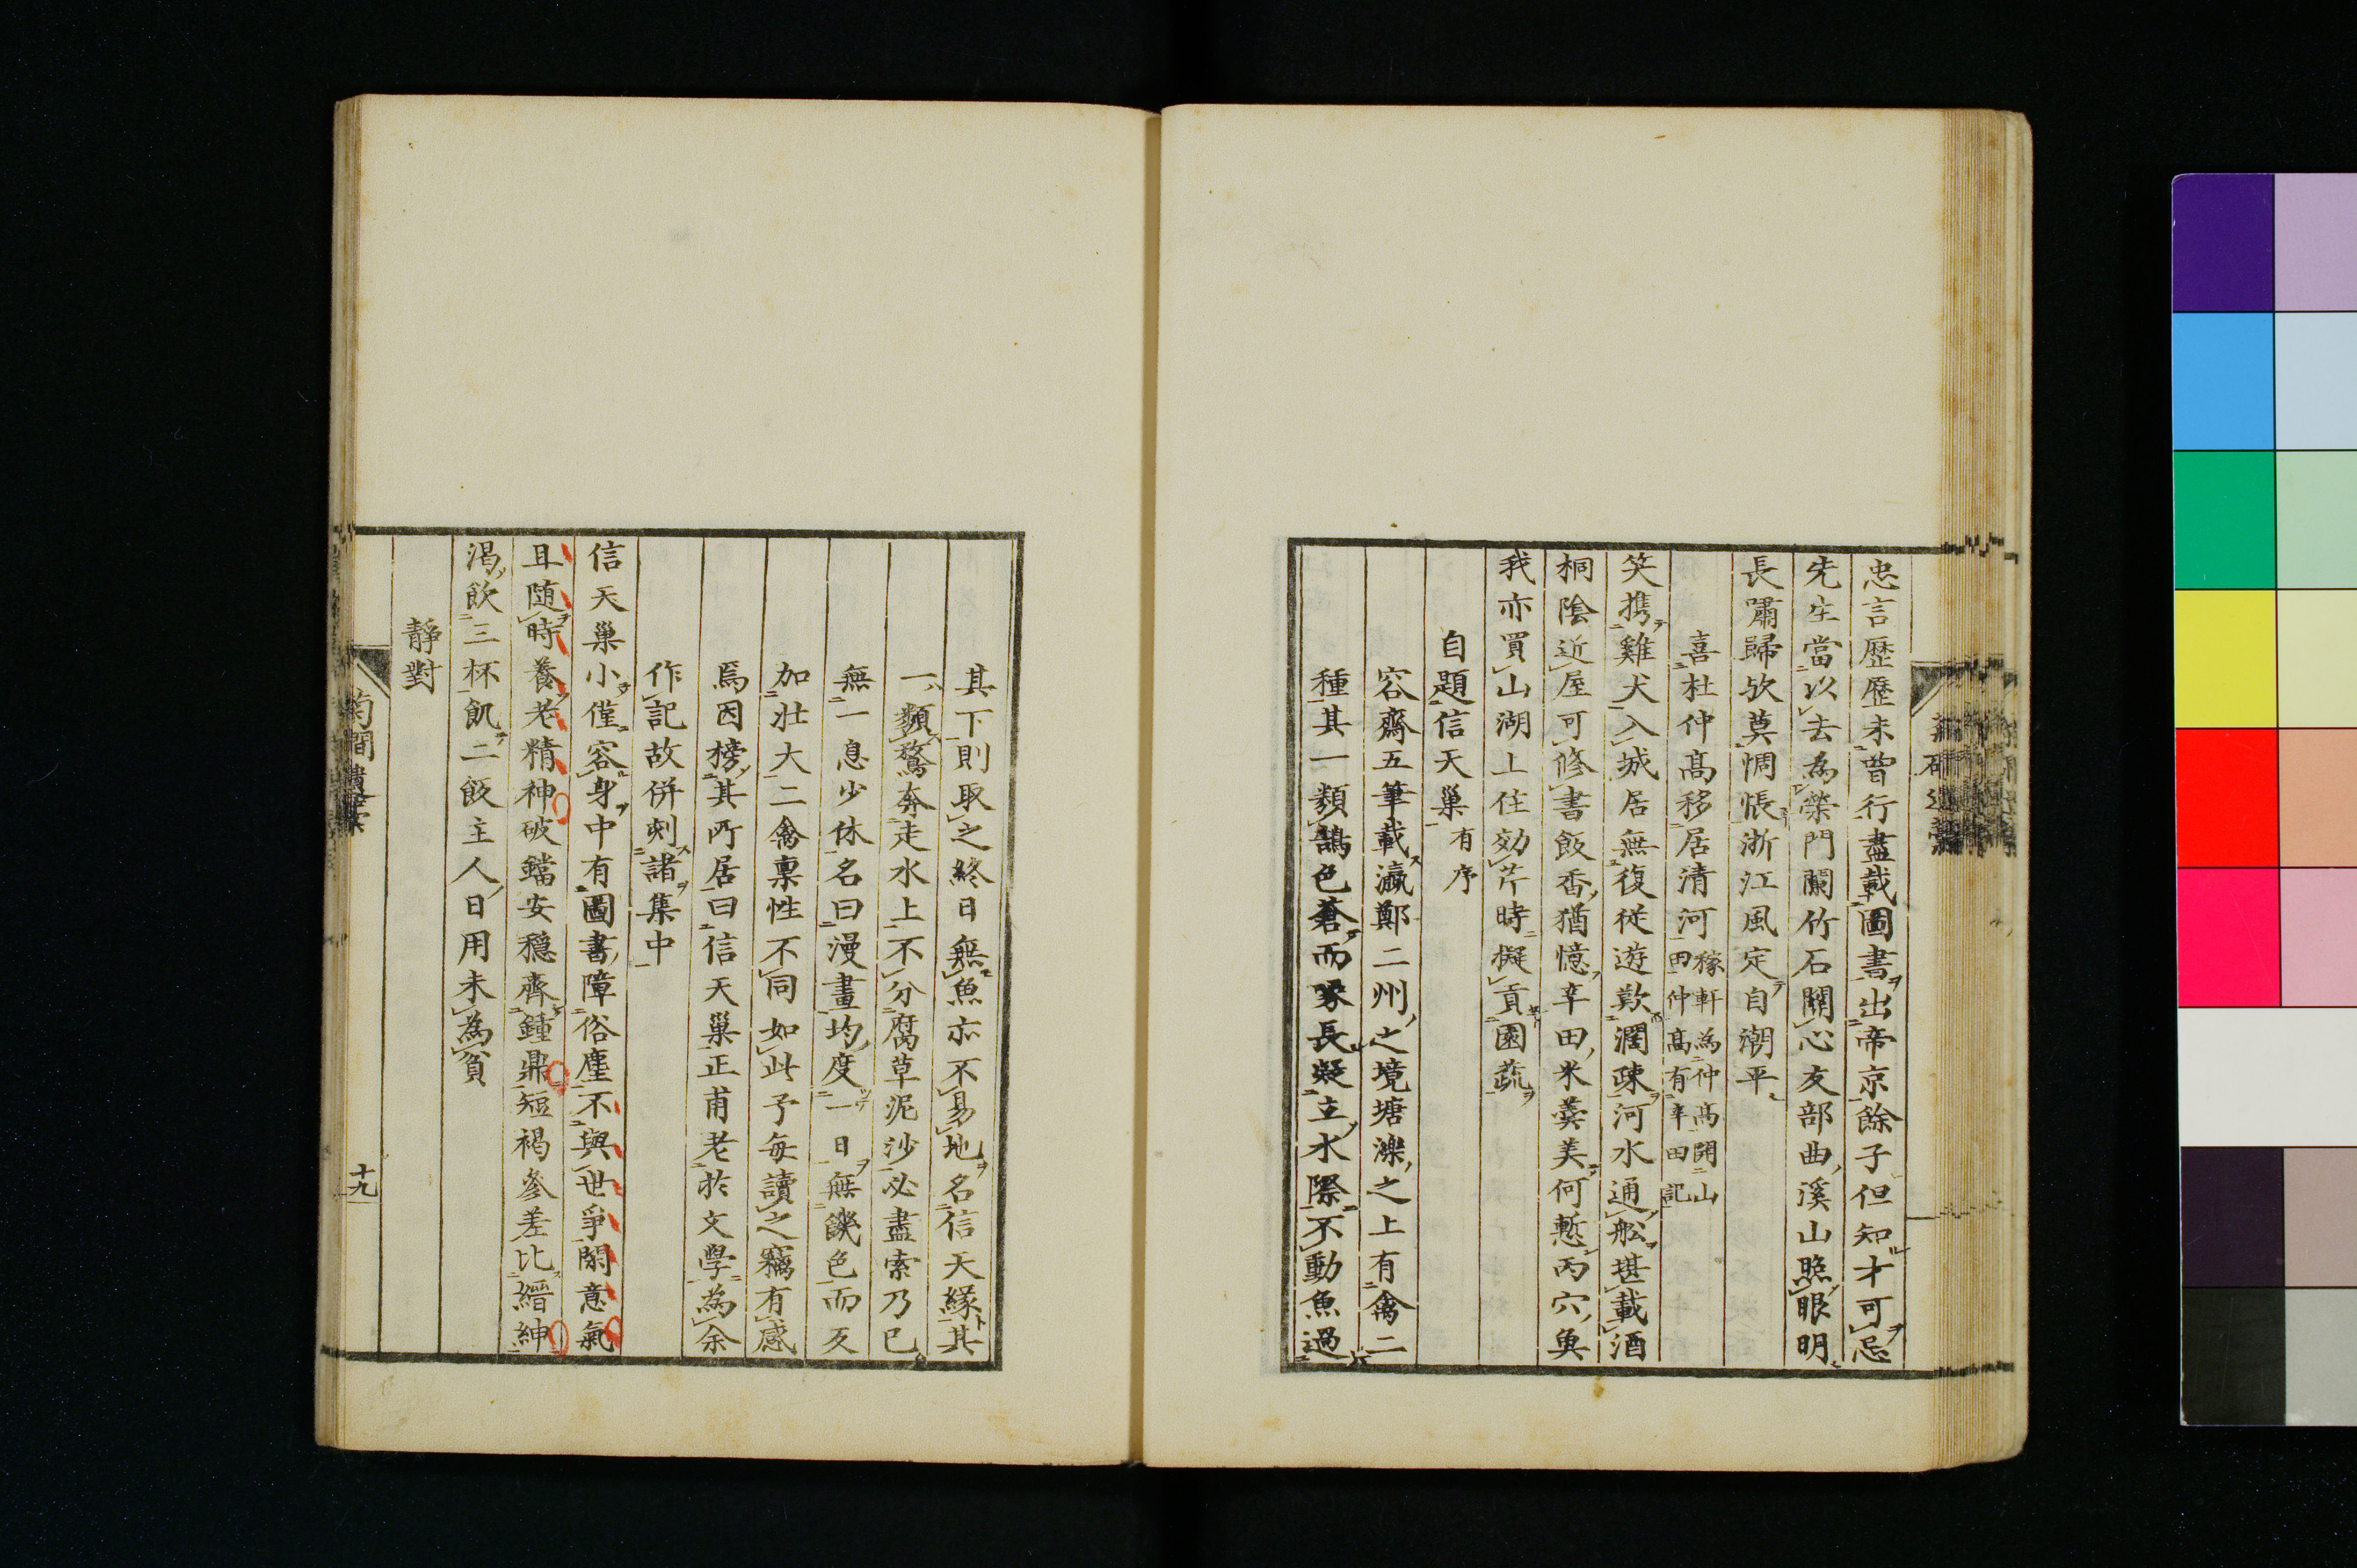 忠言歴歴未曽行盡載圖書出帝京餘子但知才可忌
先生當以去為榮門闌竹石關心友部曲溪山照眼明
長嘯歸欤莫惆悵浙江風定自潮平
喜杜仲髙移居清河
稼軒為仲髙開山
田仲髙有辛田記
笑携雞犬入城居無復従遊歎濶疎河水通船堪載酒
桐陰近屋可修書飯香猶憶辛田米羮美何慙丙穴魚
我亦買山湖上住効芹時擬貢園蔬
自題信天巢有序
容齋五筆載瀛鄭二州之境塘濼之上有禽二
種其一類鵠色蒼而喙長凝立水際不動魚過
其下則取之終日無魚亦不易地名信天緣其
一類鶩奔走水上不分腐草泥沙必盡索乃已
無一息少休名曰漫畫均度一日無饑色而反
加壯大二禽禀性不同如此予每讀之竊有感
焉因榜其所居曰信天巢正甫老於文學為余
作記故併刻諸集中
信天巢小僅容身中有圖書障俗塵不與世爭閑意氣
且随時養老精神破鐺安穏齊鍾鼎短褐參差比縉紳
渇飲三杯飢二飯主人日用未為貧
靜對
菊磵遺稾
十九